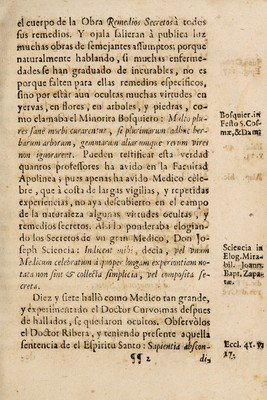 el cuerpo de la Obra Remedios Secretos à todos
sus remedios. Y ojala salieran à publica luz
muchas obras de semejantes assumptos; porque
naturalmente hablando, si muchas enferme-
dades se han graduado de incurables, no es
porque falten para ellas remedios especificos,
sino por estàr aun ocultas muchas virtudes en
yervas, en flores, en arboles, y piedras, co-
mo clamaba el Minorita Bosquiero: Multo plu-
res sanè morbi curarentur, si plurimarum adhuc her-
barum arborum, gemmarum aliarumque rerum vires
non ignorarent. Pueden testificar esta verdad
quantos professores ha avido en la Facultad
Apolinea; pues apenas ha avido Medico cele-
bre, que à costa de largas vigilias, y repetidas
experiencias, no aya descubierto en el campo
de la naturaleza algunas virtudes ocultas, y
remedios secretos. Assi lo ponderaba elogian-
do los Secretos de vn gran Medico, Don Jo-
seph Sciencia: Indicent mihi, decia, vel unum
Medicum celebratum à quo per longam experientiam no-
tata non sint & collecta simplicia, vel composita se-
creta.
Diez y siete hallò como Medico tan grande,
y experimentado el Doctor Curvo; mas despues
de hallados, se quedaron ocultos. Observòlos
el Doctor Ribera, y teniendo presente aquella
sentencia del Espiritu Santo: Sapientia abscon-
¶¶ 2
di-
Bosquier. in
Festo S. Cos-
mæ, & Dam.
Sciencia in
Elog. Mira-
bil. Joann.
Bapt. Zapa-
tæ.
Eccl. 41. ℣
17.